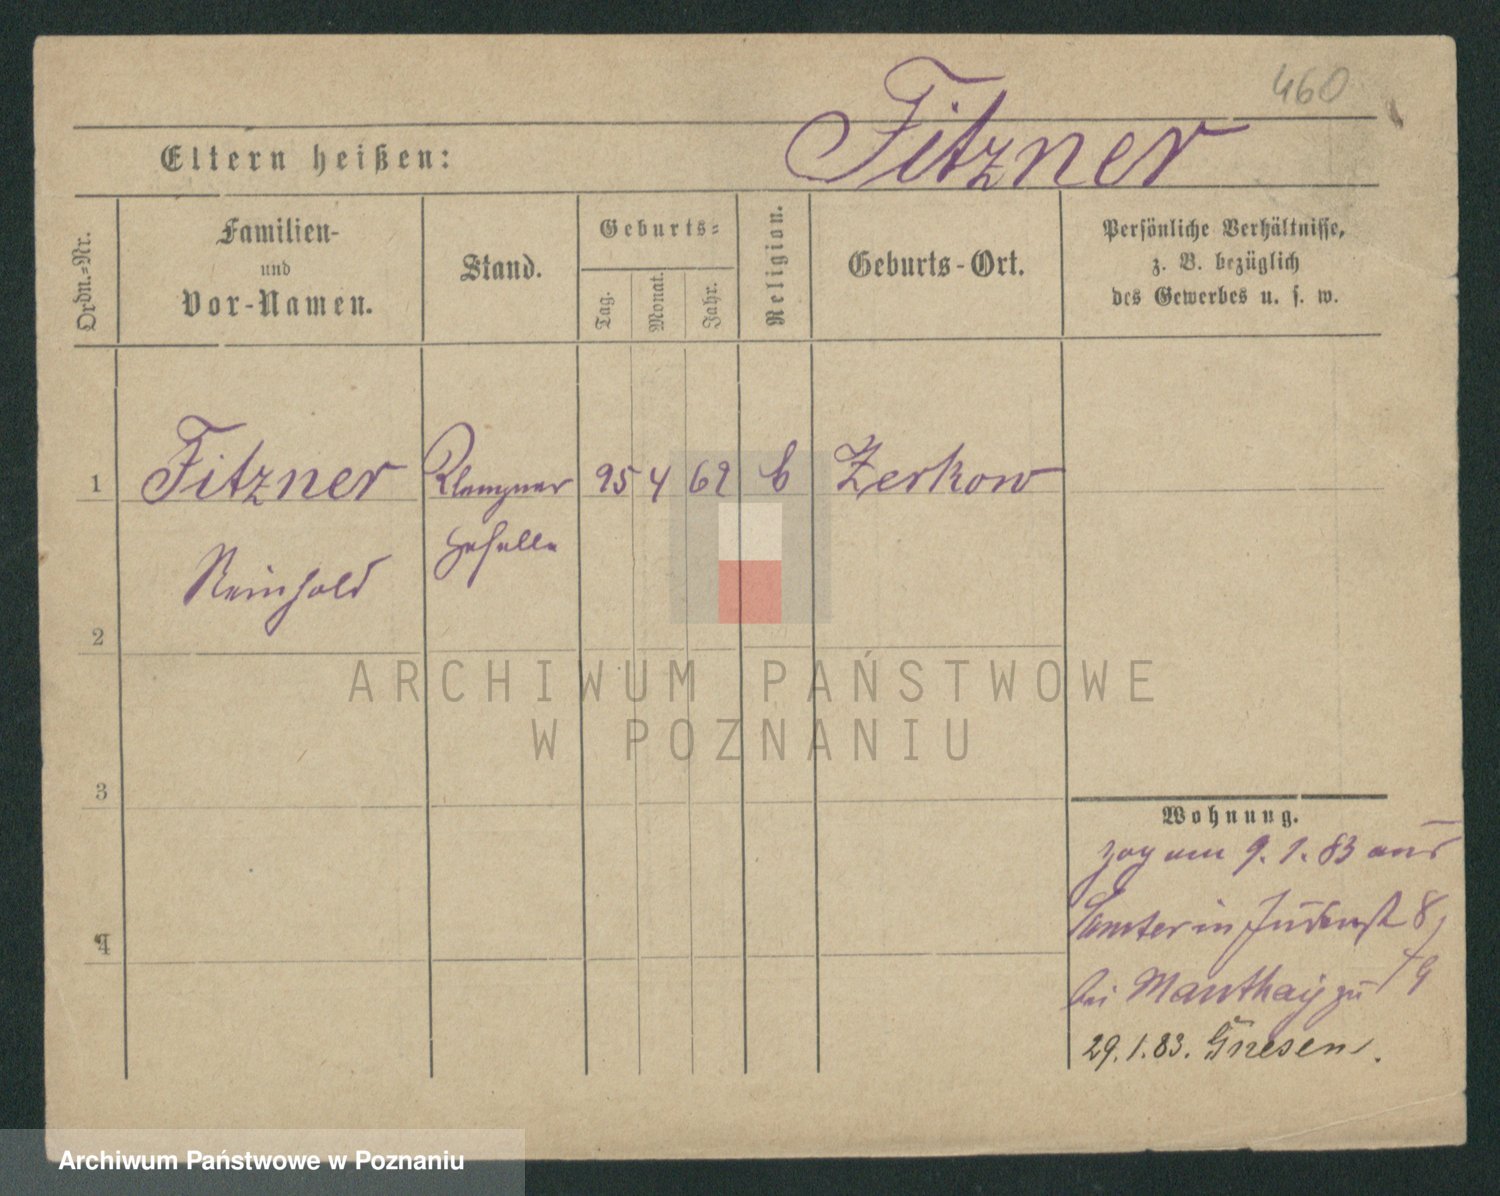 460
Fitzner
Eltern heißen:
Ordn.=Nr.
Familien-
und
Vor-Namen.
Stand.
Geburts=
Tag.
Monat.
Jahr.
Religion.
Geburts-Ort.
Persönliche Verhältnisse,
z. B. bezüglich
des Gewerbes u. s. w.
1 Fitzner Klempner 25 4 62 Zerkow
Reinhold geselle
2
3
4
Wohnung.
zog am 9. 1. 83 aus
Samter in Judenst 8/9
bei Manthay zu
29. 1. 83. Gnesen.
ARCHIWUM PAŃSTWOWE
W POZNANIU
Archiwum Państwowe w Poznaniu